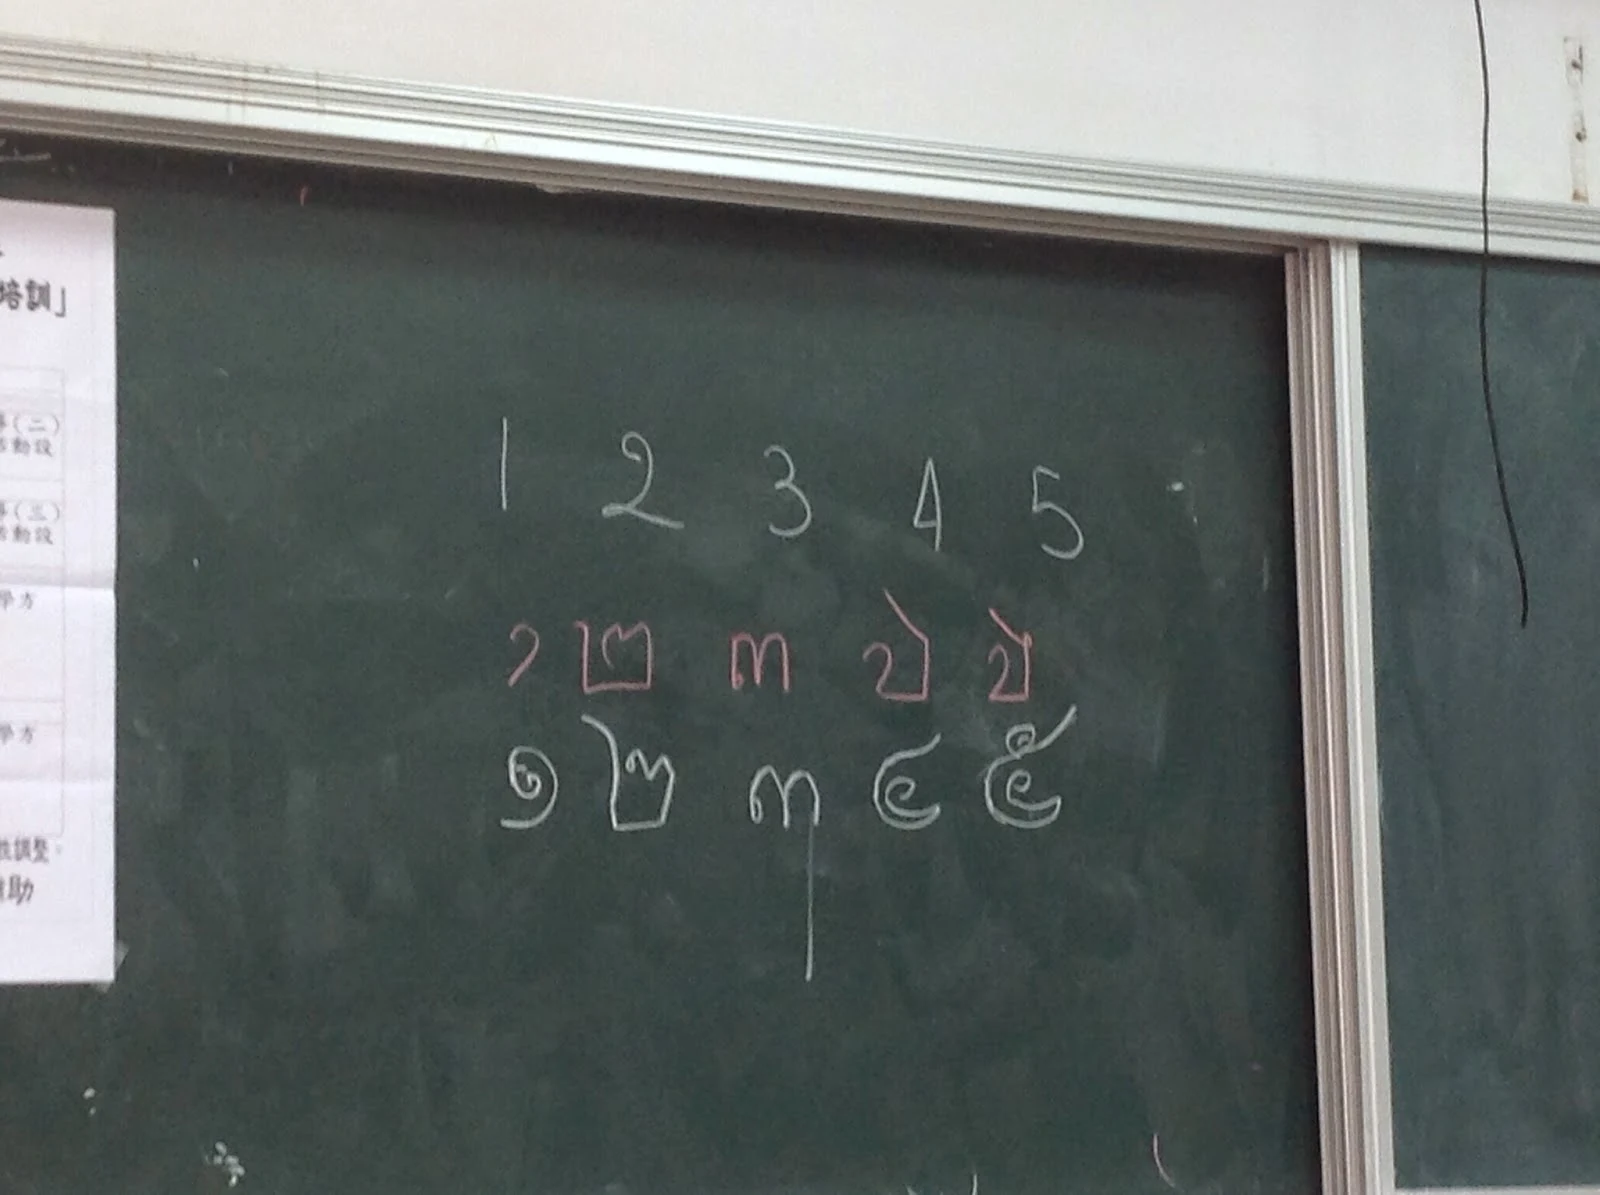 培訓」
(二)
動設
(三)
動設
學方
學方
調整，
助
1 2 3 4 5
១ ២ ៣ ៤ ៥
๑ ๒ ๓ ๔ ๕